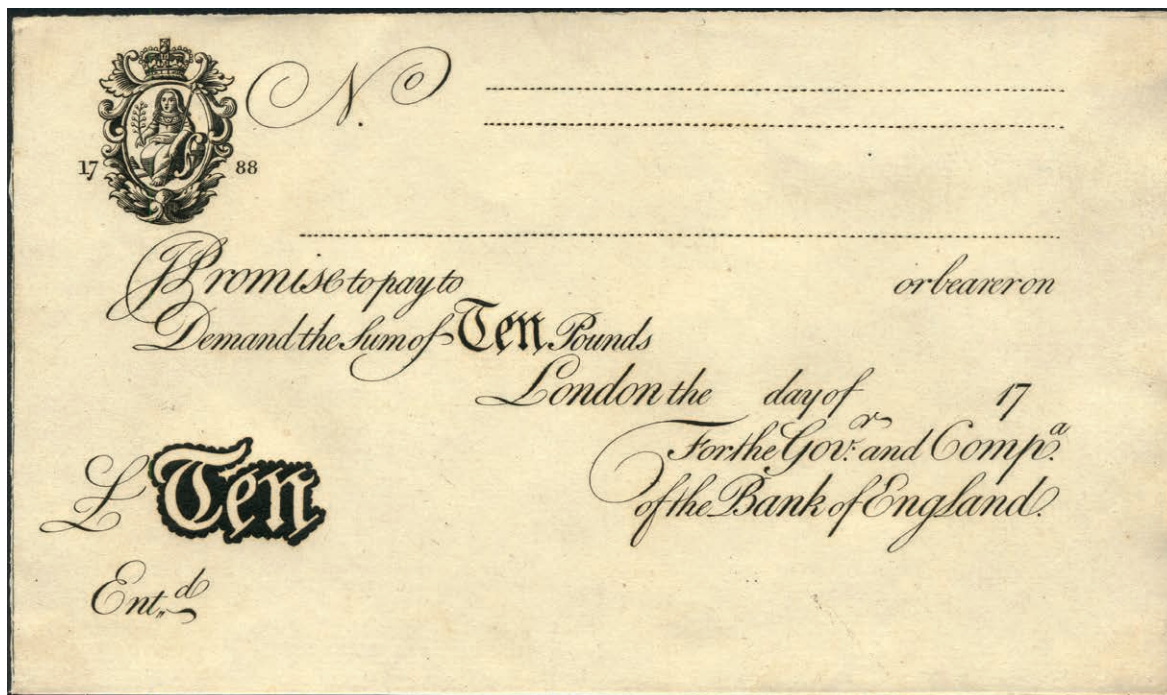 No
17 88
I Promise to pay to or bearer on
Demand the Sum of Ten Pounds
London the day of 17
For the Govr. and Compa.
of the Bank of England.
£ Ten
Entd